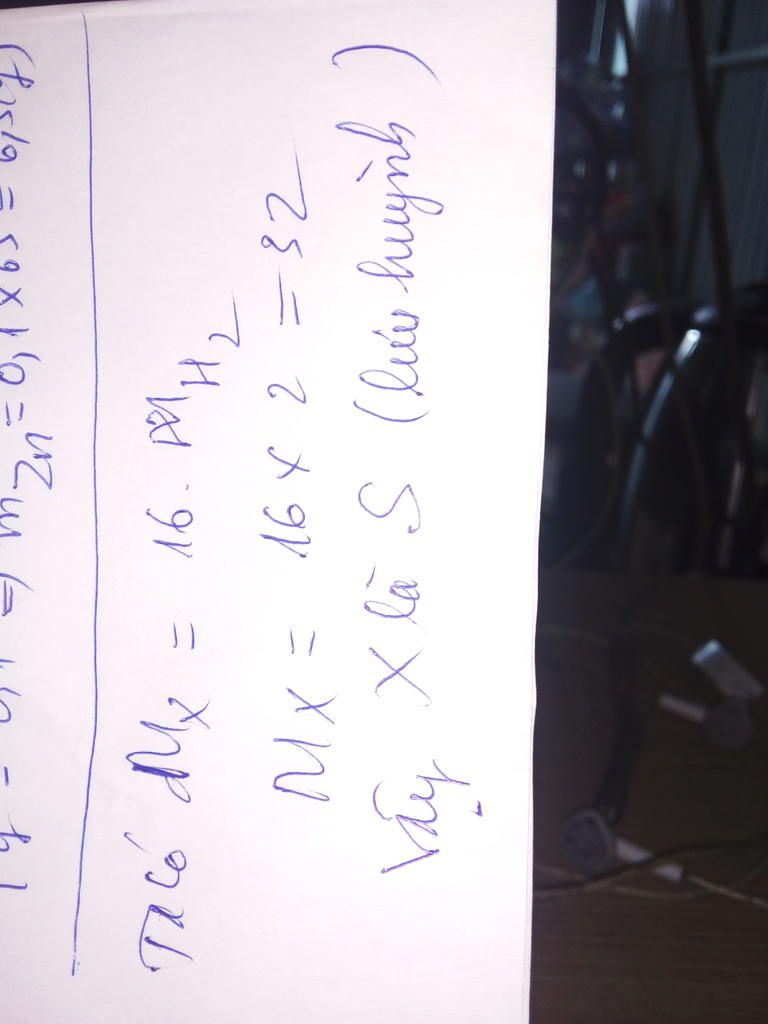 y = 0,1 => m Zn = 0,1 x 65 = 6,5(g)
Ta có Mx = 16. M H2
Mx = 16 x 2 = 32
Vậy X là S (lưu huỳnh)